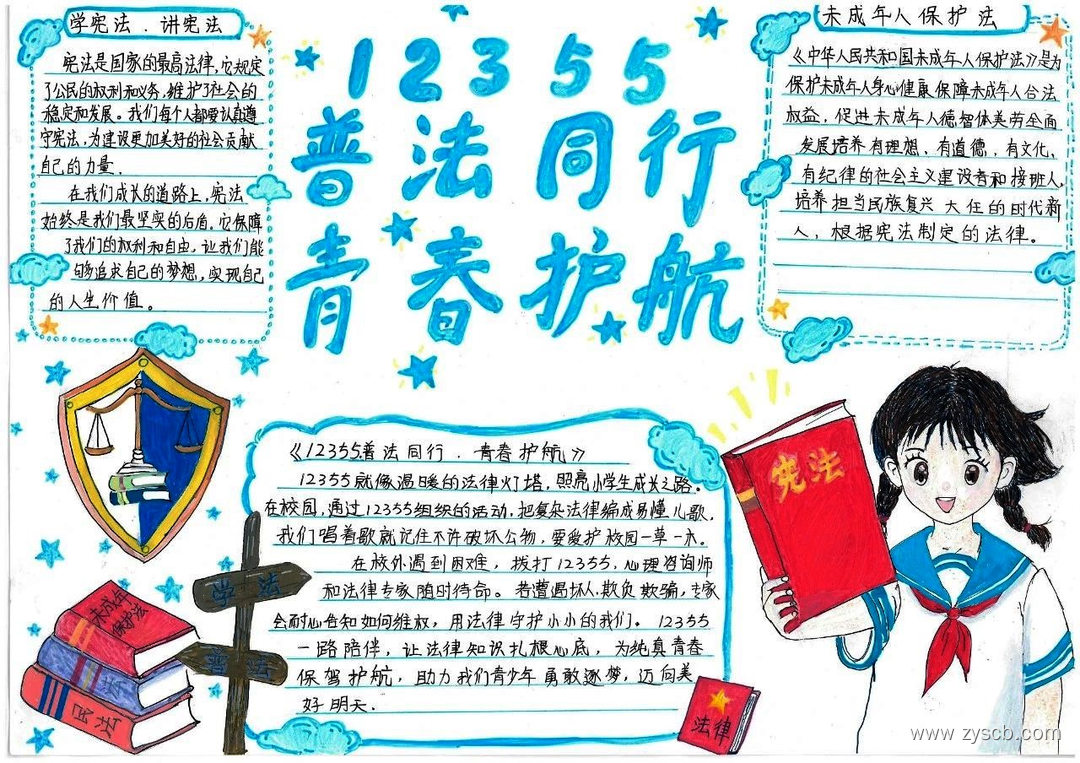 学宪法.讲宪法
宪法是国家的最高法律,它规定
了公民的权利和义务,维护了社会的
稳定和发展。我们每个人都要认真遵
守宪法,为建设更加美好的社会贡献
自己的力量.
在我们成长的道路上,宪法
始终是我们最坚实的后盾,它保障
了我们的权利和自由,让我们能
够追求自己的梦想,实现自己
的人生价值。
12355
普法同行
青春护航
未成年人保护法
《中华人民共和国未成年人保护法》是为
保护未成年人身心健康,保障未成年人合法
权益,促进未成年人德智体美劳全面
发展培养有理想,有道德,有文化,
有纪律的社会主义建设者和接班人,
培养担当民族复兴大任的时代新
人,根据宪法制定的法律。
《12355普法同行.青春护航》
12355就像温暖的法律灯塔,照亮小学生成长之路。
在校园,通过12355组织的活动,把复杂法律编成易懂儿歌,
我们唱着歌就记住不许破坏公物,要爱护校园一草一木。
在校外遇到困难,拨打12355,心理咨询师
和法律专家随时待命。若遭遇坏人欺负欺骗,专家
会耐心告知如何维权,用法律守护小小的我们。12355
一路陪伴,让法律知识扎根心底,为纯真青春
保驾护航,助力我们青少年勇敢逐梦,迈向美
好明天.
宪法
学法
普法
未成年
保护法
民法
法律
www.zyscb.com